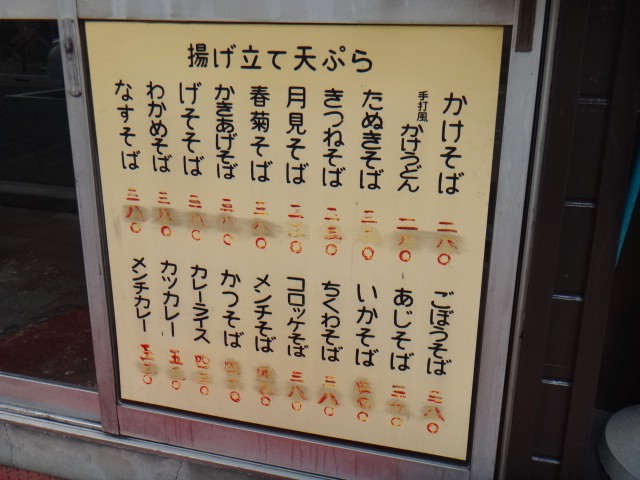 揚げ立て天ぷら
かけそば 二八〇
手打風 かけうどん
たぬきそば
きつねそば
月見そば
春菊そば
かきあげそば
げそそば
わかめそば
なすそば 三八〇
ごぼうそば 三八〇
あじそば
いかそば
ちくわそば 三八〇
コロッケそば 三八〇
メンチそば
かつそば
カレーライス
カツカレー
メンチカレー